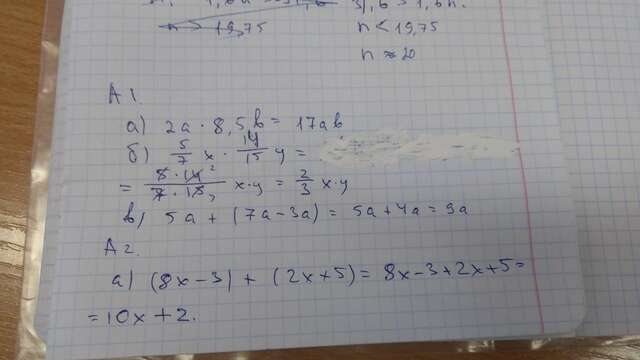 31,6 > 1,6n.
n > 19,75 n < 19,75
n ≈ 20
A 1.
а) 2a · 8,5b = 17ab
б) 5/7 x · 14/15 y =
= 5·14/7·15 x·y = 2/3 x·y
в) 5a + (7a-3a) = 5a+4a=9a
A 2.
а) (8x-3) + (2x+5) = 8x-3+2x+5=
=10x+2.